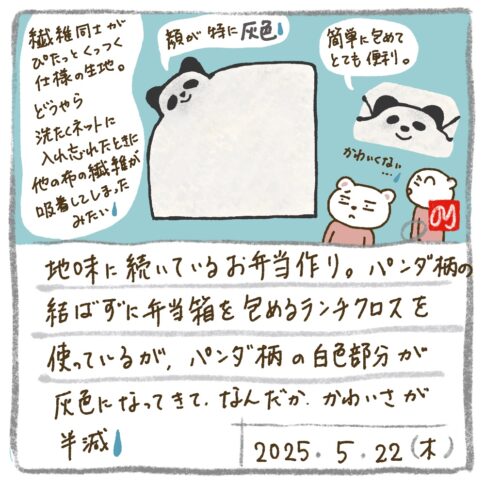 繊維同士が
ぴたっとくっつく
仕様の生地。
どうやら
洗たくネットに
入れ忘れたときに
他の布の繊維が
吸着してしまった
みたい
顔が特に灰色
簡単に包めて
とても便利。
かわいくない…
地味に続いているお弁当作り。パンダ柄の
結ばずに弁当箱を包めるランチクロスを
使っているが、パンダ柄の白色部分が
灰色になってきて、なんだか、かわいさが
半減
2025.5.22(木)